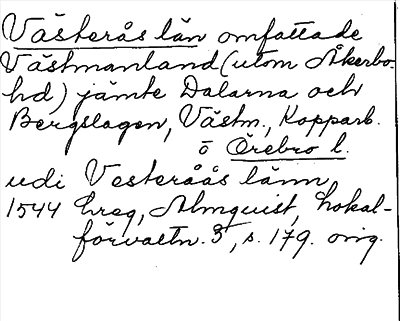 Västerås län omfattade
Västmanland (utom Åkerbo
hd) jämte Dalarna och
Bergslagen, Västm., Kopparb.
o Örebro l.
udi Vesteråås länn
1544 breg, Almquist, Lokal-
förvaltn. 3, s. 179. orig.